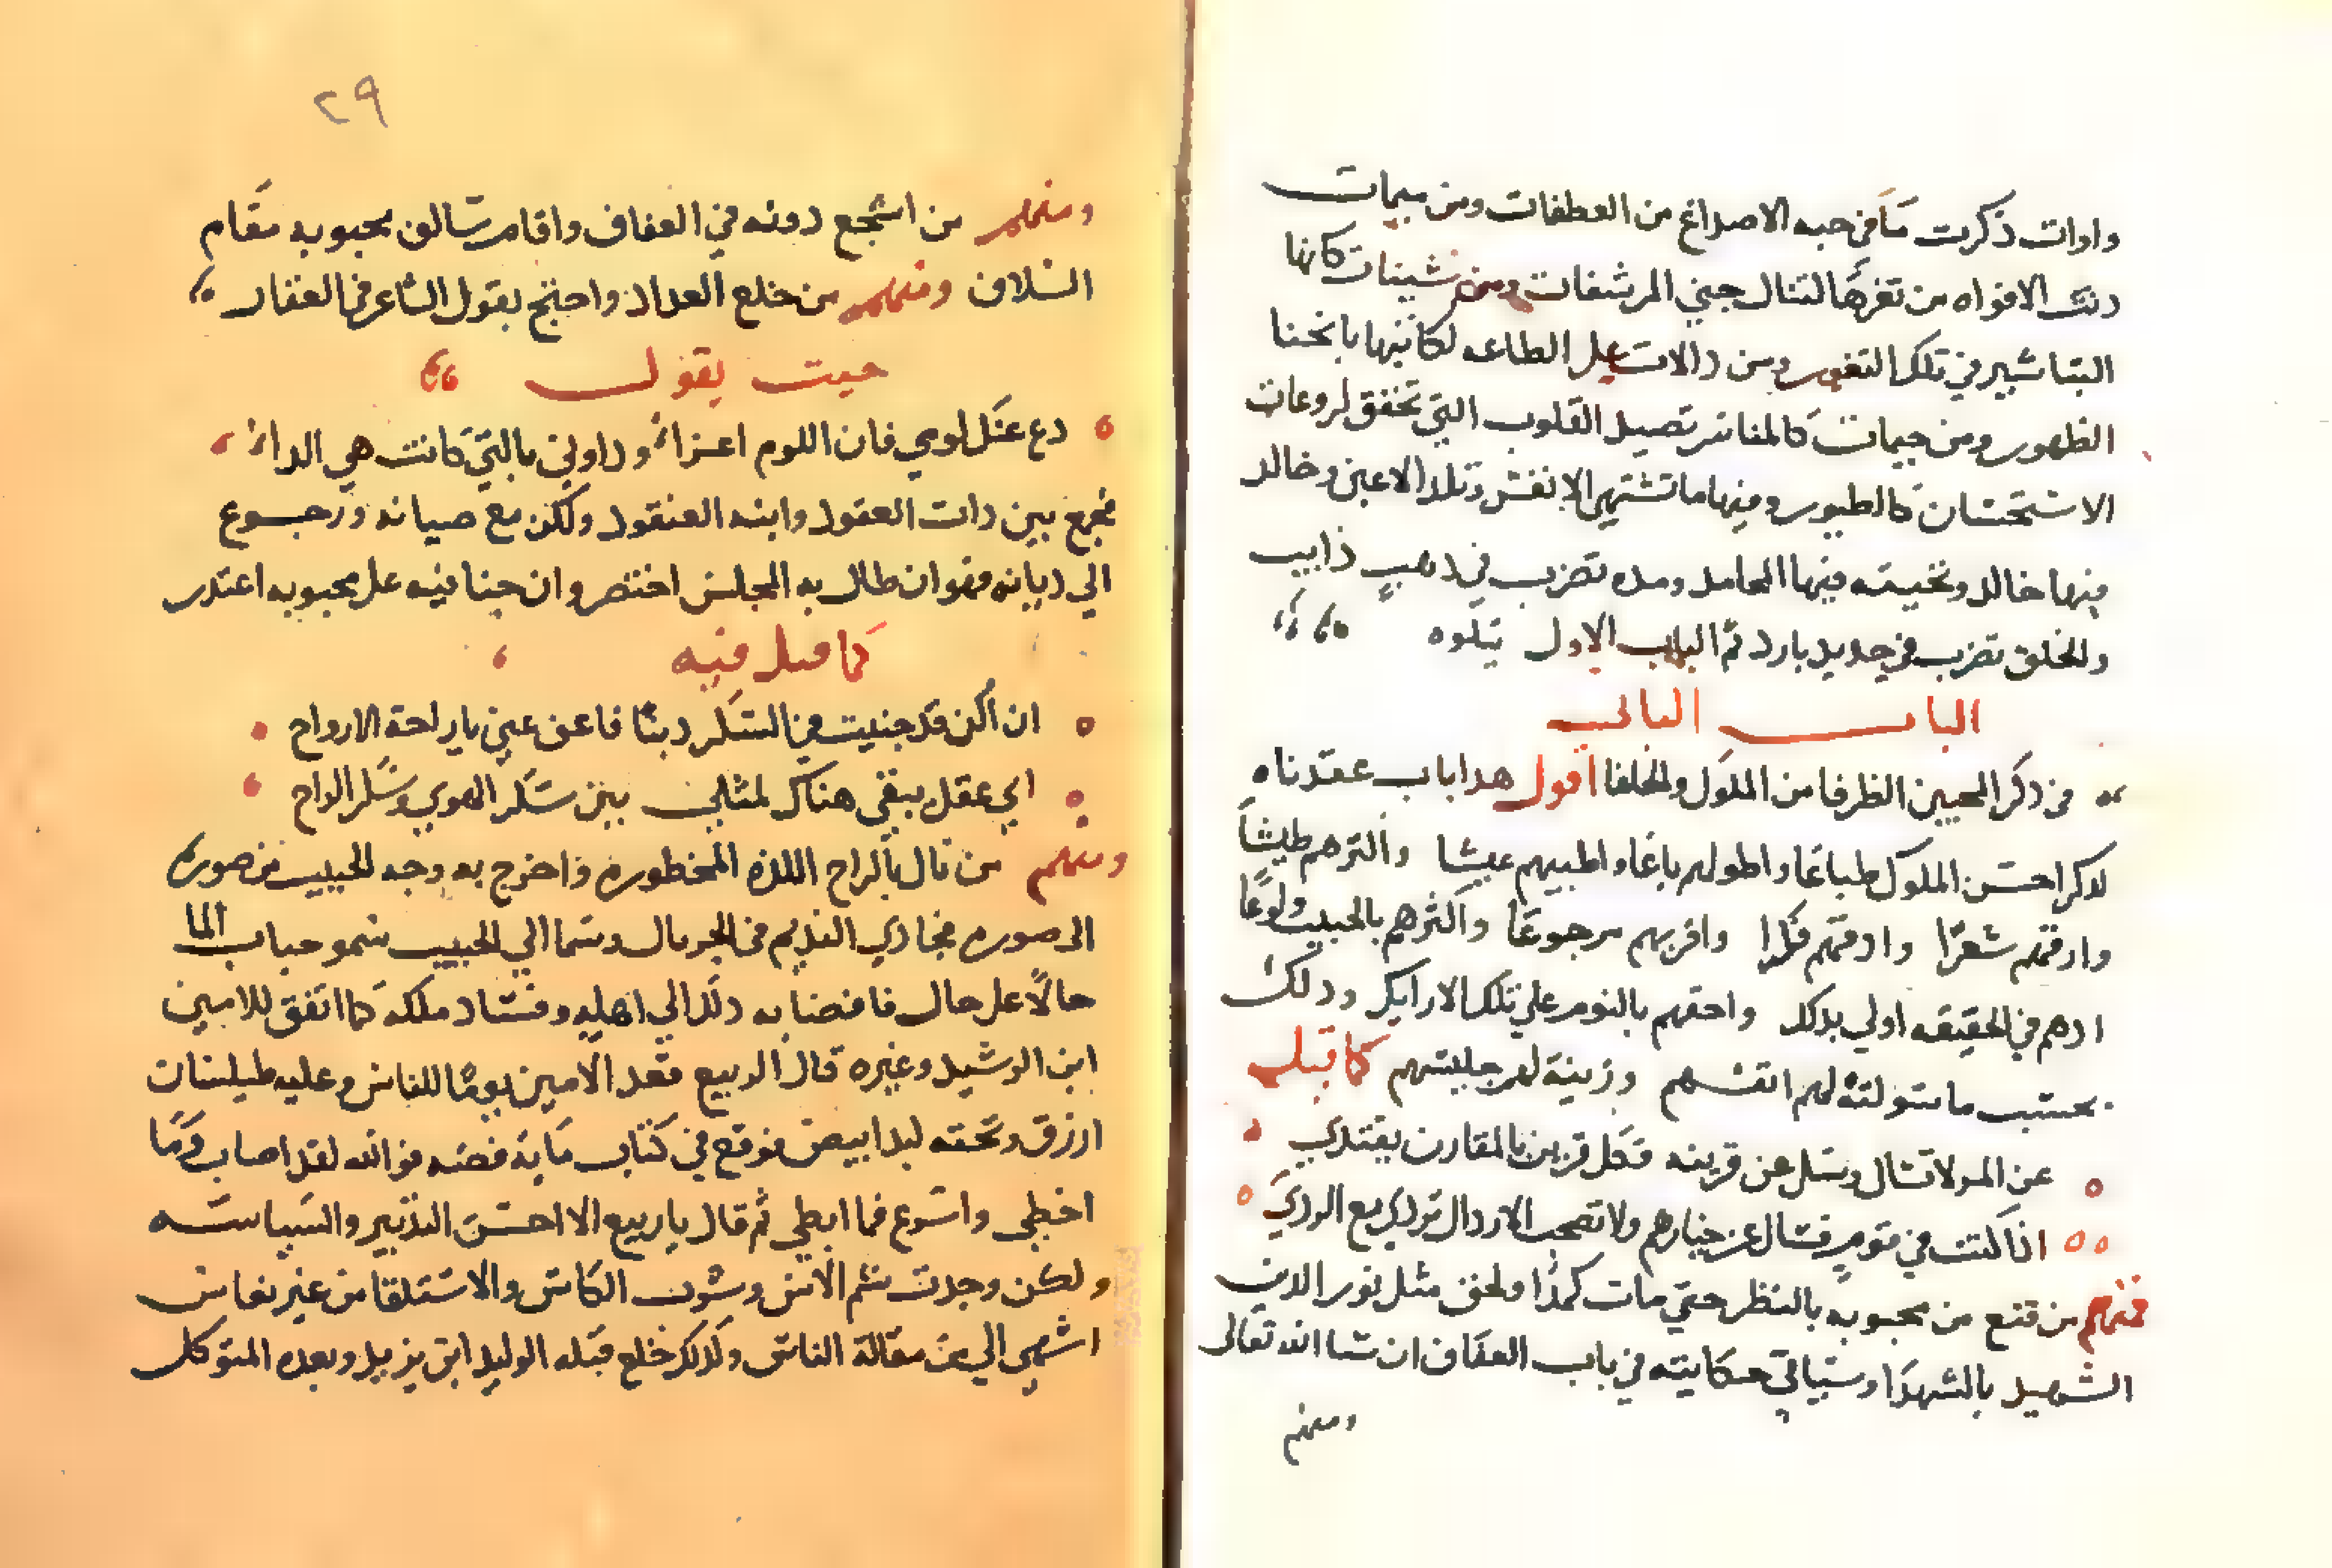 واوات ذكرت مَا في حبه الاصداغ من العطفات ومن ميمات
دنت الافواه من ثغرها لتنال جني المرشفات ومن شينات كانها
التباشير في تلك الثغور ومن دالات علي الطاعه لكاتبها بانحنا
الظهور ومن جيمات كالمناسر تصيد القلوب التي تخفق لروعات
الاستحسان كالطيور وفيها ما تشتهي الانفس وتلد الاعين وخالد
فيها خالد وتحيته فيها المحامد ومده تضرب في دهبٍ ذايب
والخلق تضرب في حديد بارد تم الباب الاول يتلوه
الباب الثاني
في ذكر المحبين الظرفا من الملوك والخلفا اقول هدا باب عقدناه
لدكر احسن الملوك طباعًا واطولهم باعًا واطيبهم عيشا واكثرهم طيشًا
وارقهم شعرًا وادقهم فكرا واقربهم رجوعًا واكثرهم بالحبيب ولوعًا
ادهم في الحقيقه اولي بدلك واحقهم بالنوم علي تلك الارايك ودلك
بحسب ما سولته لهم انفسهم وزينة لهم جليسهم كما قيل
عن المرء لا تسال وسل عن قرينه فكل قرين بالمقارن يقتدي
اذا كنت في قومٍ فسال عن خيارهم ولا تصحب الاردال تردي مع الردي
فمنهم من قنع من محبوبه بالنظر حتي مات كمدًا ولحق مثل نور الدين
الشهيد بالشهدا وسياتي حكايته في باب العفاف ان شا الله تعالى
ومنهم
٢٩
ومنهم من اشجع دونه في العفاف واقام سالف محبوبه مقام
السلاف ومنهم من خلع العداد واحتج بقول الشاعر في العقار
حيت يقول
دع عنك لومي فان اللوم اعزاءُ وداوني بالتي كانت هي الداءُ
فجمع بين دات العقود وابنه العنقود ولكن مع صيانه ورجوع
الي ديانه فهو ان طال به المجلس اختصر وان جنا فيه علي محبوبه اعتدر
كما قيل فيه
ان اكن قد جنيت في السكر دبنًا فاعف عني يا راحة الارواح
اي عقل يبقي هناك لمثلي بين سكر الهوي وسكر الراح
ومنهم من نال بالراح اللذه المحظوره واخرج به وجه الحبيب من صوره
الى صوره فجاري النديم في الجريال وسما الي الحبيب سمو حباب الما
حالًا على حال فافضا به دلك الي اهليه وفساد ملكه كما اتفق للامين
ابن الرشيد وغيره قال الربيع قعد الامين يومًا للناس وعليه طيلسان
ازرق وتحته لبد ابيض فوقع في كتاب ماية قصه فوالله لقد اصاب وما
اخطي واسرع فما ابطي ثم قال يا ربيع الا احسن التدبير والسياسه
ولكن وجدت شم الاس وشرب الكاس والاستلقا من غير نعاس
اشهي الي من مقالة الناس ولدلك خلع قبله الوليد ابن يزيد وبعده المتوكل